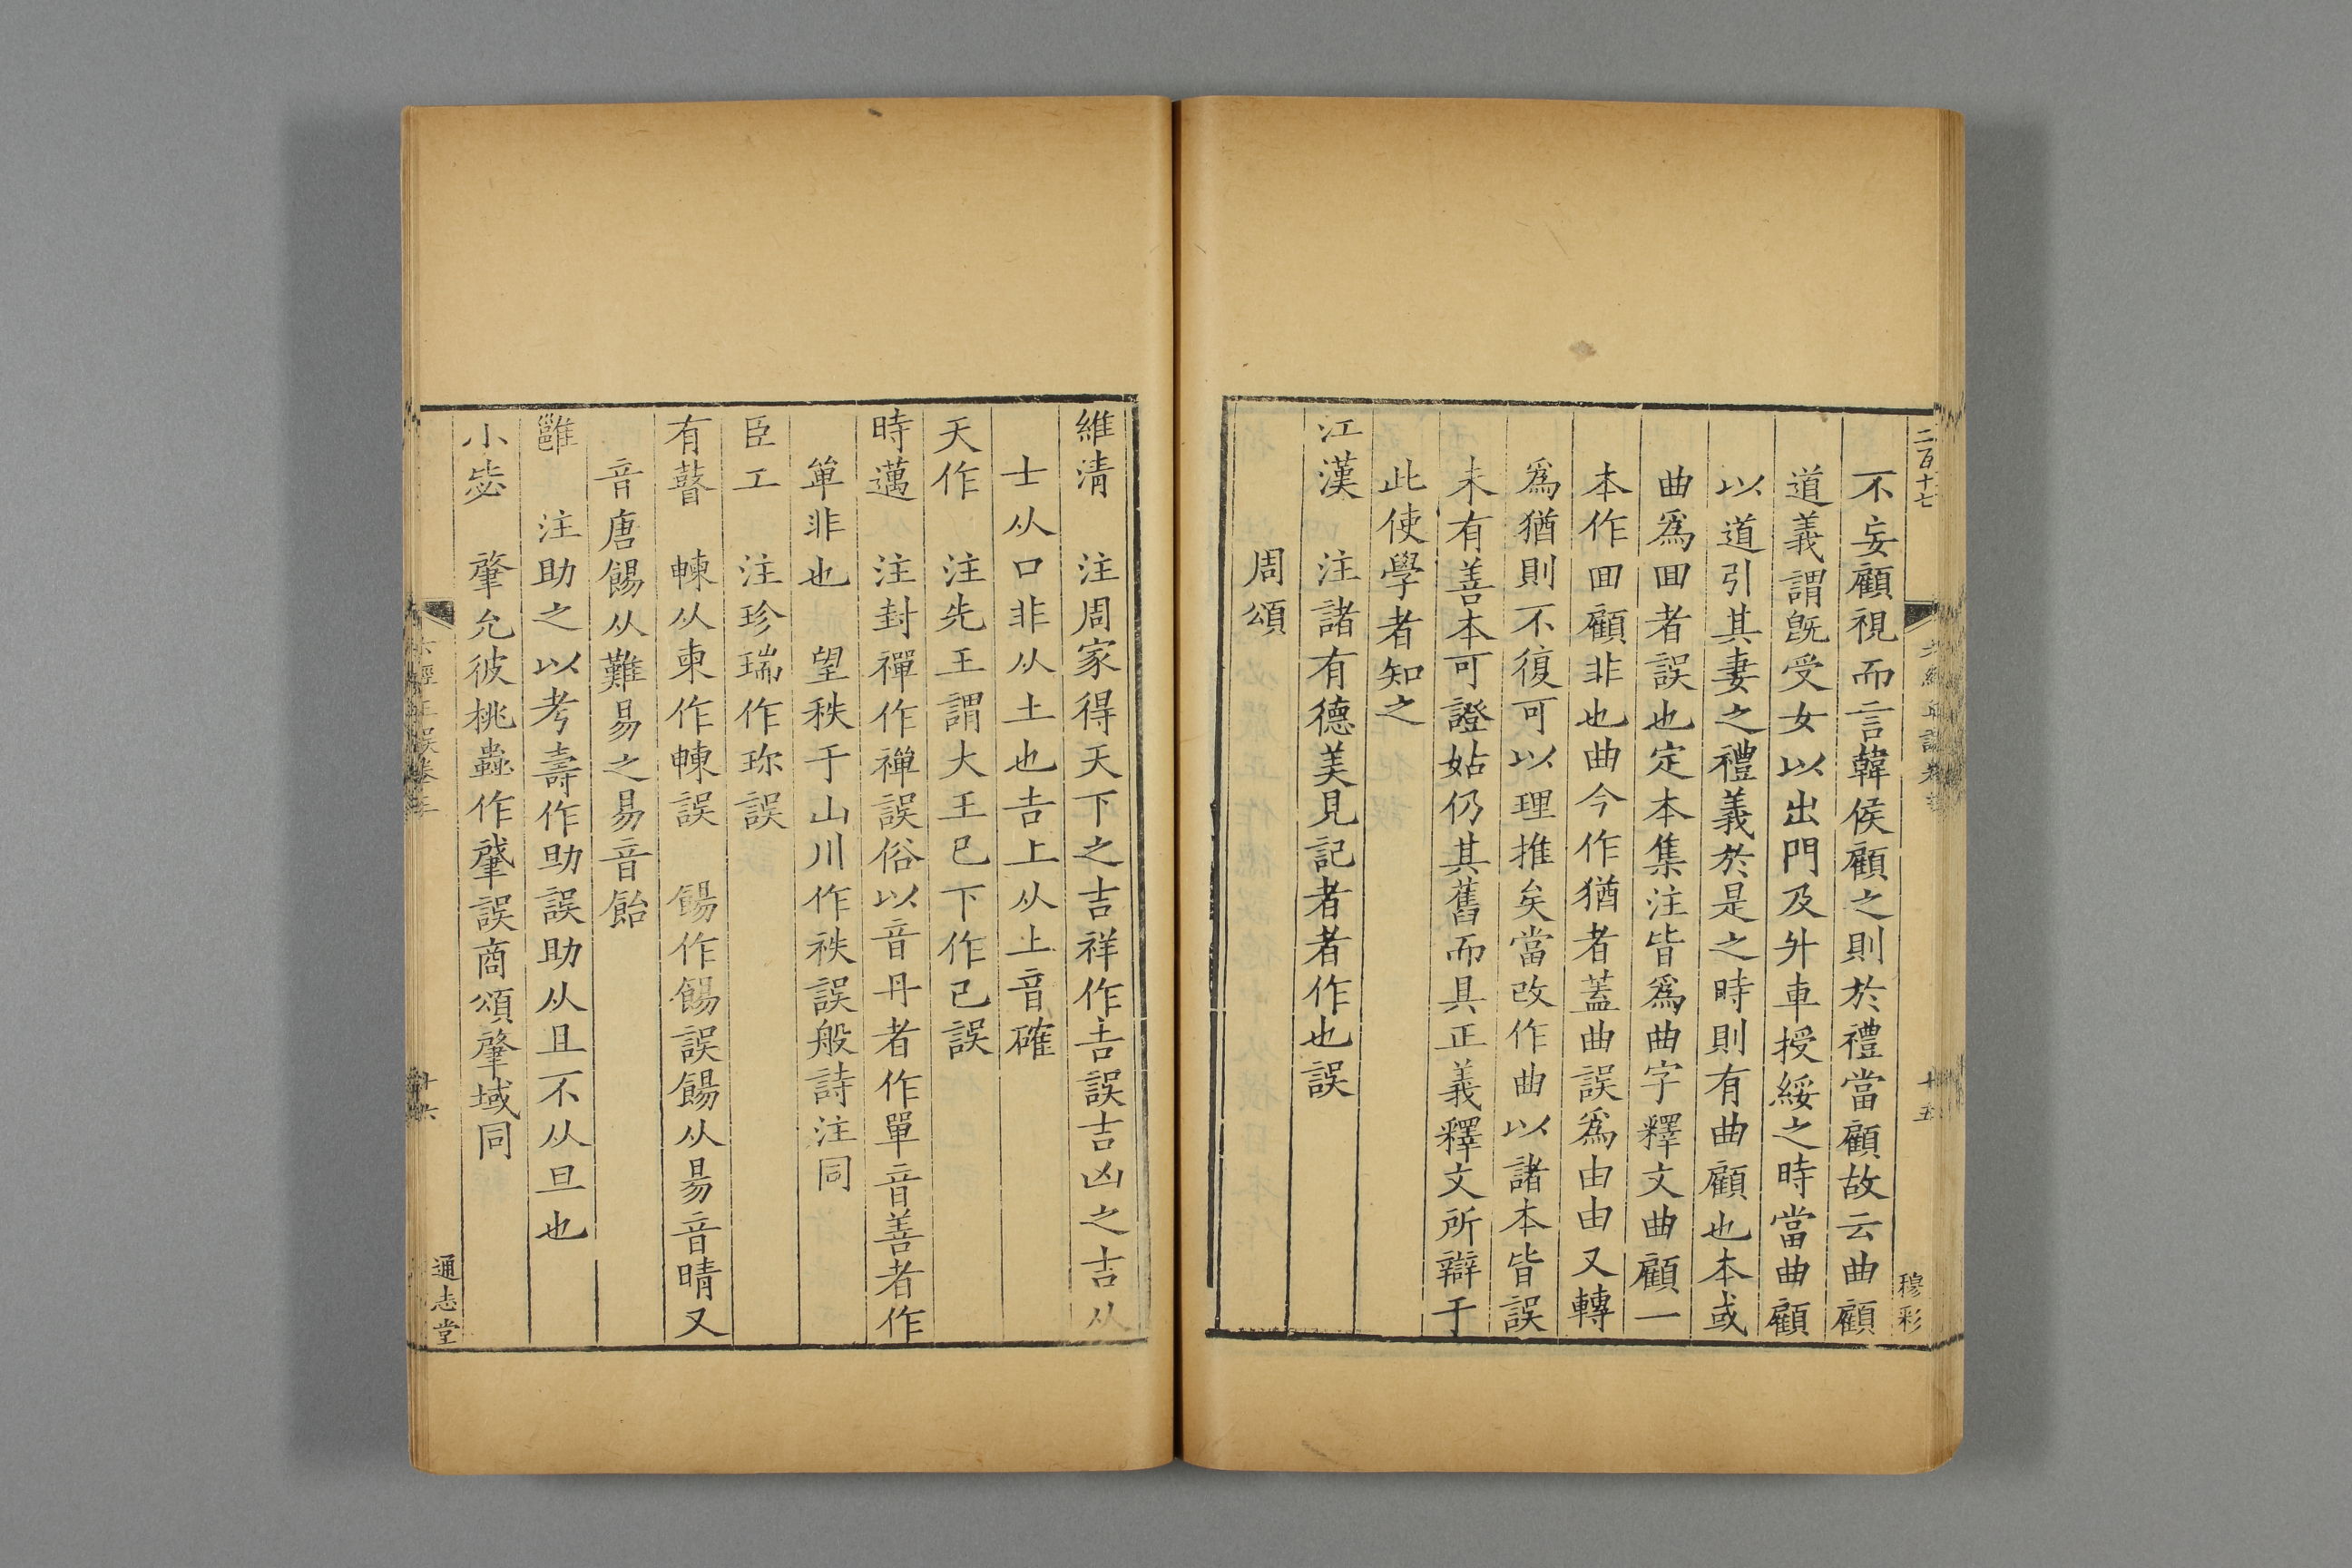 二百十七
十五
穆彩
不妄顧視而言韓侯顧之則於禮當顧故云曲顧
道義謂旣受女以出門及升車授綏之時當曲顧
以道引其妻之禮義於是之時則有曲顧也本或
曲爲回者誤也定本集注皆爲曲字釋文曲顧一
本作回顧非也曲今作猶者蓋曲誤爲由由又轉
爲猶則不復可以理推矣當改作曲以諸本皆誤
未有善本可證姑仍其舊而具正義釋文所辯于
此使學者知之
江漢 注諸有德美見記者者作也誤
周頌
維清 注周家得天下之吉祥作吉誤吉凶之吉从
士从口非从土也吉上从上音確
天作 注先王謂大王已下作己誤
時邁 注封禪作禅誤俗以音丹者作單音善者作
单非也 望秩于山川作袟誤般詩注同
臣工 注珍瑞作珎誤
有瞽 㯥从柬作𣌾誤 餳作餳誤餳从昜音晴又
音唐餳从難易之易音飴
雝 注助之以考壽作助誤助从且不从旦也
小毖 肇允彼桃蟲作肈誤商頌肇域同
六經正誤卷三
十六
通志堂